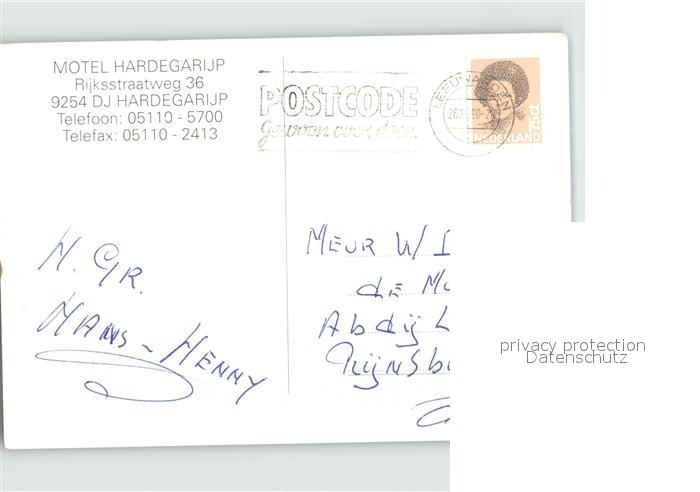 MOTEL HARDEGARIJP
Rijksstraatweg 36
9254 DJ HARDEGARIJP
Telefoon: 05110 - 5700
Telefax: 05110 - 2413
POSTCODE
gewoon even doen.
LEEUWARDEN
NEDERLAND 75ct
H. GR.
HANS - HENNY
MEVR W/
de M
Abdij L
Rijnsb
privacy protection
Datenschutz